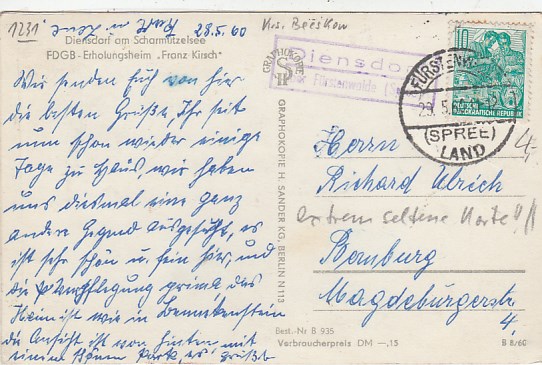 1231
28.5.60
Krs. Beeskow
Diensdorf am Scharmützelsee
FDGB-Erholungsheim „Franz Kirsch"
Wir senden Euch von hier
die besten Grüße, Ihr seit
nun schon wieder einige
Tage zu Haus, wir haben
uns diesmal eine ganz
andere Gegend ausgesucht, es
ist sehr schön u. fein hier, und
die Verpflegung prima das
Heim ist wie in Benneckenstein
die Ansicht ist von hinten mit
einem schönen Park, es grüßt
GRAPHOKOPIE
GRAPHOKOPIE H. SANDER KG, BERLIN N 113
Diensdorf
Fürstenwalde (Spree)
FÜRSTENWALDE
(SPREE)
LAND
10
DEUTSCHE
DEMOKRATISCHE REPUBLIK
4,-
Herrn
Richard Ulrich
extrem seltene Karte!!
Bernburg
Magdeburgerstr
4,
Best.-Nr B 935
Verbraucherpreis DM –,15
B 8/60